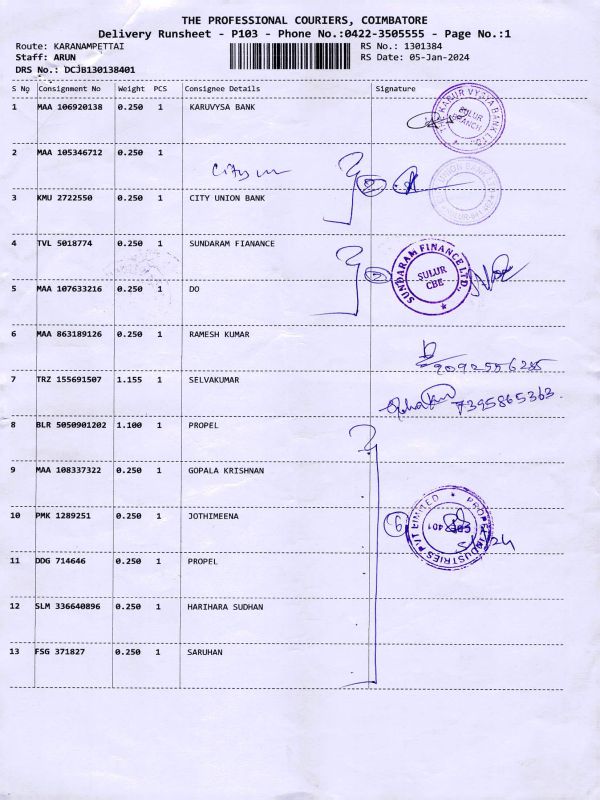 THE PROFESSIONAL COURIERS, COIMBATORE
Delivery Runsheet - P103 - Phone No.:0422-3505555 - Page No.:1
Route: KARANAMPETTAI RS No.: 1301384
Staff: ARUN RS Date: 05-Jan-2024
DRS No.: DCJB130138401
S No Consignment No Weight PCS Consignee Details Signature
1 MAA 106920138 0.250 1 KARUVYSA BANK
SULUR BRANCH
2 MAA 105346712 0.250 1
City un 2
3 KMU 2722550 0.250 1 CITY UNION BANK
4 TVL 5018774 0.250 1 SUNDARAM FIANANCE
SUNDARAM FINANCE LTD.,
SULUR
CBE
5 MAA 107633216 0.250 1 DO
6 MAA 863189126 0.250 1 RAMESH KUMAR
7 TRZ 155691507 1.155 1 SELVAKUMAR
7395865363
8 BLR 5050901202 1.100 1 PROPEL
9 MAA 108337322 0.250 1 GOPALA KRISHNAN
10 PMK 1289251 0.250 1 JOTHIMEENA
6 PROPEL INDUSTRIES PVT LIMITED
11 DDG 714646 0.250 1 PROPEL
12 SLM 336640896 0.250 1 HARIHARA SUDHAN
13 FSG 371827 0.250 1 SARUHAN